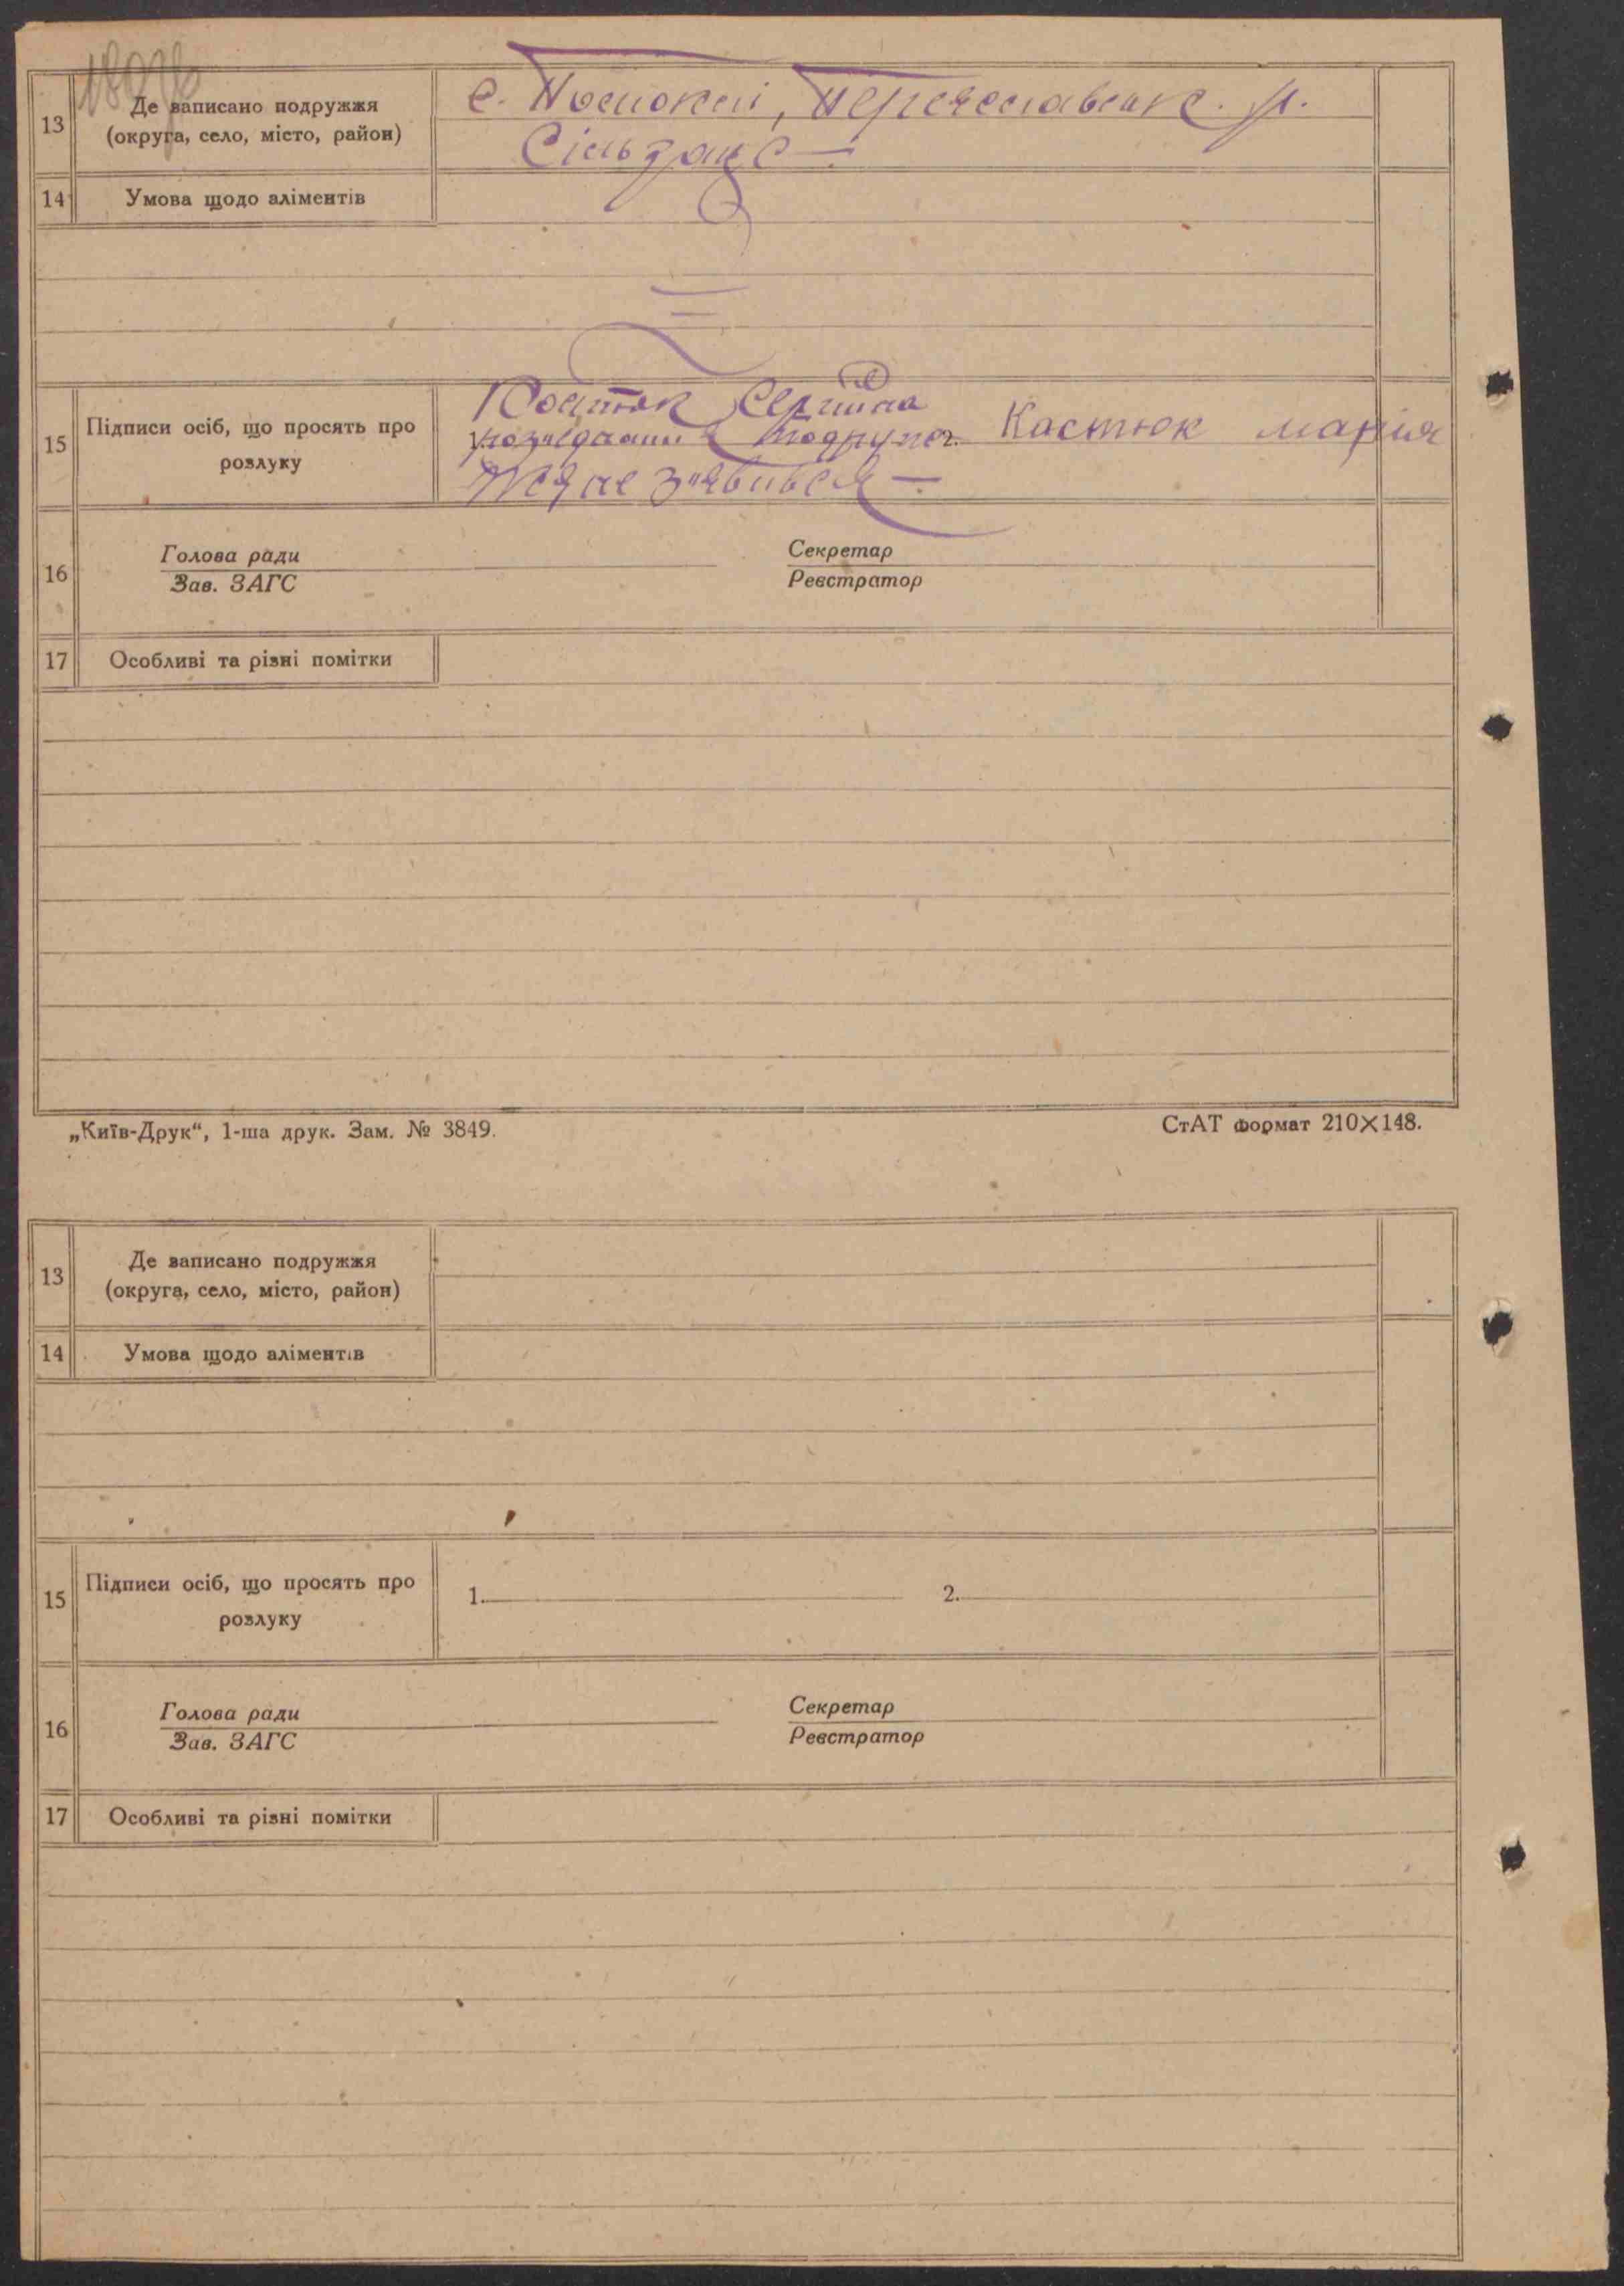 13
Де записано подружжя
(округа, село, місто, район)
с. Помоклі, Переяславськ. р.
Сільрадс
14
Умова щодо аліментів
15
Підписи осіб, що просять про
розлуку
Костюк
подруж.
не з'явився
Костюк Марія
16
Голова ради
Зав. ЗАГС
Секретар
Реєстратор
17
Особливі та різні помітки
„Київ-Друк“, 1-ша друк. Зам. № 3849.
СтАТ формат 210×148.
13
Де записано подружжя
(округа, село, місто, район)
14
Умова щодо аліментів
15
Підписи осіб, що просять про
розлуку
1.
2.
16
Голова ради
Зав. ЗАГС
Секретар
Реєстратор
17
Особливі та різні помітки